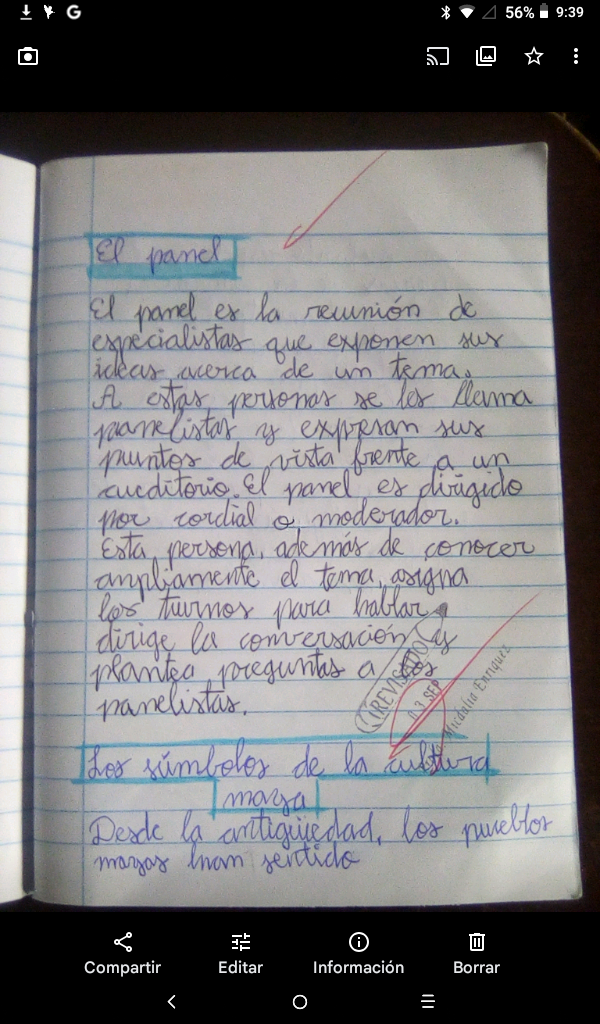 56% 9:39
El panel
El panel es la reunión de
especialistas que exponen sus
ideas acerca de un tema.
A estas personas se les llama
panelistas y expresan sus
puntos de vista frente a un
auditorio. El panel es dirigido
por cordial o moderador.
Esta persona, además de conocer
ampliamente el tema, asigna
los turnos para hablar,
dirige la conversación y
plantea preguntas a los
panelistas.
REVISADO
03 SEP
Enriquez
Los súmbolos de la cultura
maya
Desde la antigüedad, los pueblos
mayas han sentido
Compartir Editar Información Borrar